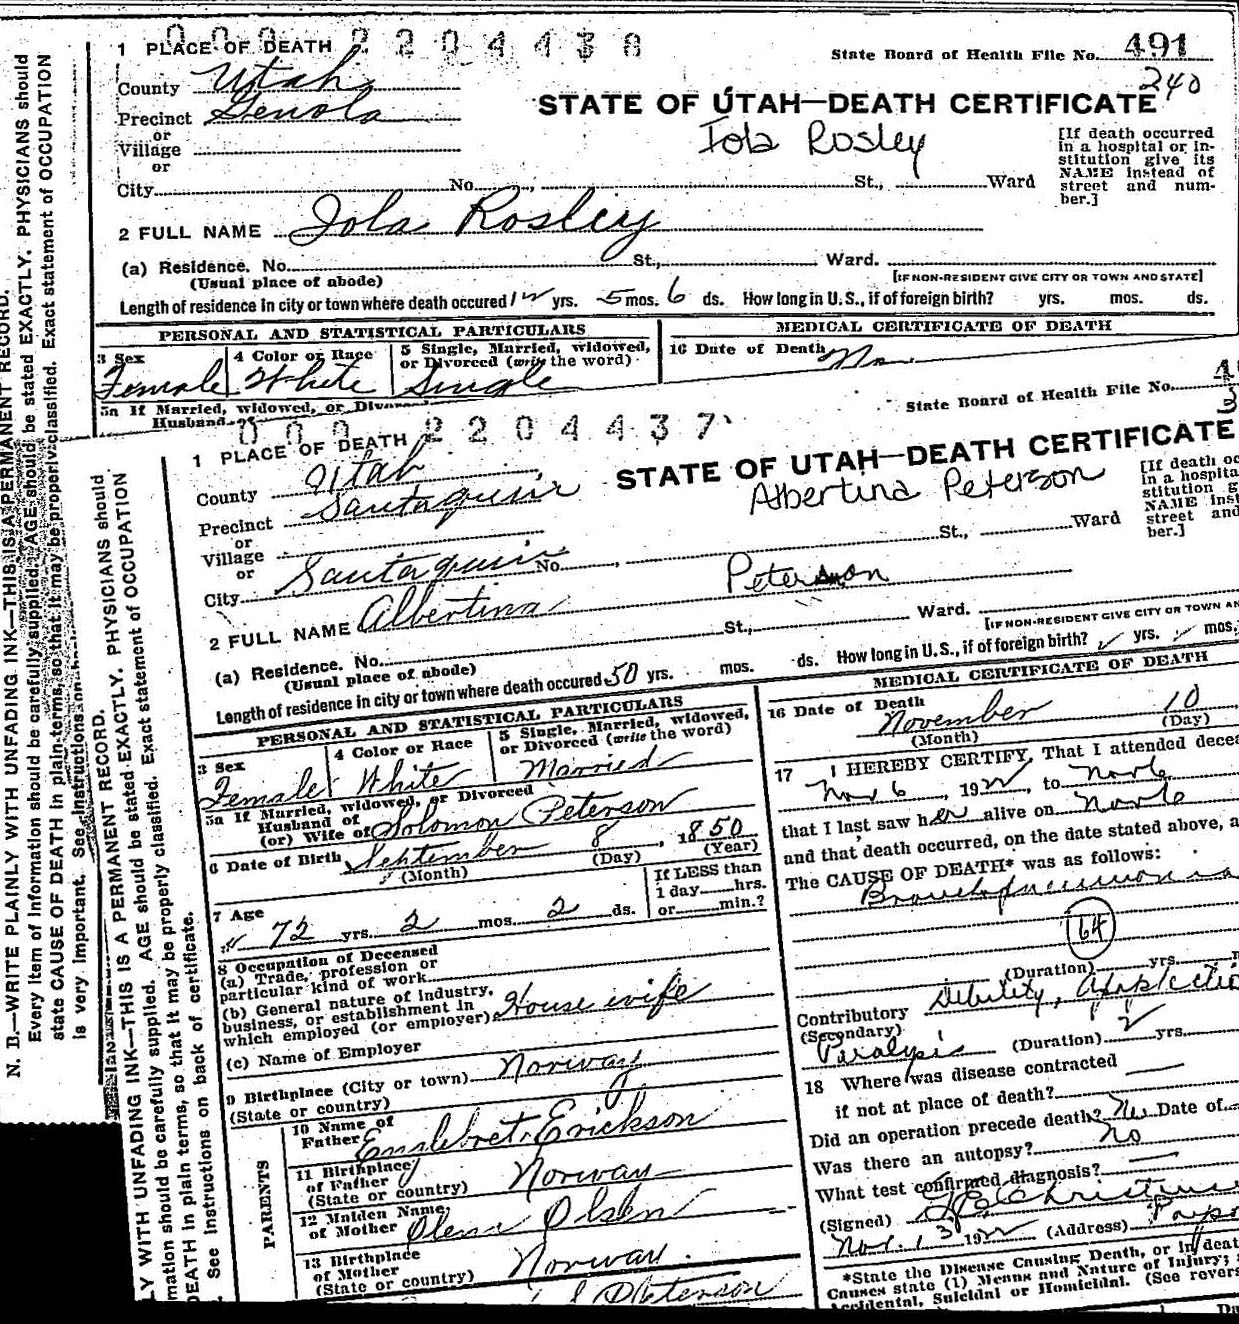 0002204438
1 PLACE OF DEATH
State Board of Health File No. 491
240
County Utah
Precinct Genola
or
Village
or
STATE OF UTAH—DEATH CERTIFICATE
Iola Rosley
[If death occurred
in a hospital or in-
stitution give its
NAME instead of
street and num-
ber.]
City No. St., Ward
2 FULL NAME Iola Rosley
(a) Residence. No. St., Ward.
(Usual place of abode)
[IF NON-RESIDENT GIVE CITY OR TOWN AND STATE]
Length of residence in city or town where death occured 12 yrs. 5 mos. 6 ds. How long in U. S., if of foreign birth? yrs. mos. ds.
PERSONAL AND STATISTICAL PARTICULARS
MEDICAL CERTIFICATE OF DEATH
3 Sex
Female
4 Color or Race
White
5 Single, Married, widowed,
or Divorced (write the word)
Single
16 Date of Death
5a If Married, widowed, or
Husband
N. B.—WRITE PLAINLY WITH UNFADING INK—THIS IS A PERMANENT RECORD.
Every item of Information should be carefully supplied. AGE should be stated EXACTLY. PHYSICIANS should
state CAUSE OF DEATH in plain terms, so that it may be properly classified. Exact statement of OCCUPATION
is very Important. See Instructions on
0002204437
1 PLACE OF DEATH
State Board of Health File No.
County Utah
Precinct Santaquin
or
Village
or
City Santaquin No. St., Ward
STATE OF UTAH—DEATH CERTIFICATE
Albertina Peterson
[If death oc
in a hospital
stitution g
NAME inst
street and
ber.]
2 FULL NAME Albertina Peterson
(a) Residence. No. St., Ward.
(Usual place of abode)
[IF NON-RESIDENT GIVE CITY OR TOWN AN
Length of residence in city or town where death occured 50 yrs. mos. ds. How long in U. S., if of foreign birth? yrs. mos.
PERSONAL AND STATISTICAL PARTICULARS
3 Sex
Female
4 Color or Race
White
5 Single, Married, widowed,
or Divorced (write the word)
Married
5a If Married, widowed, or Divorced
Husband of
(or) Wife of Solomon Peterson
6 Date of Birth September 8, 1850
(Month) (Day) (Year)
7 Age
72 yrs. 2 mos. 2 ds.
If LESS than
1 day hrs.
or min.?
8 Occupation of Deceased
(a) Trade, profession or
particular kind of work
(b) General nature of industry,
business, or establishment in
which employed (or employer) House wife
(c) Name of Employer
9 Birthplace (City or town) Norway
(State or country)
PARENTS
10 Name of
Father Englebret Erickson
11 Birthplace
of Father
(State or country) Norway
12 Maiden Name
of Mother Olena Olsen
13 Birthplace
of Mother
(State or country) Norway.
S Peterson
MEDICAL CERTIFICATE OF DEATH
16 Date of Death
November 10
(Month) (Day)
17 I HEREBY CERTIFY, That I attended decea
Nov 6, 1922, to Nov 6
that I last saw her alive on Nov 6
and that death occurred, on the date stated above, a
The CAUSE OF DEATH* was as follows:
Bronchopneumonia
64
(Duration) yrs.
Contributory Debility,
(Secondary)
Paralysis (Duration) 2 yrs.
18 Where was disease contracted
if not at place of death?
Did an operation precede death? No Date of
Was there an autopsy? No
What test confirmed diagnosis?
(Signed)
Nov. 13 1922 (Address)
*State the Disease Causing Death, or in death
Causes state (1) Means and Nature of Injury;
Accidental, Suicidal or Homicidal. (See revers
LY WITH UNFADING INK—THIS IS A PERMANENT RECORD.
mation should be carefully supplied. AGE should be stated EXACTLY. PHYSICIANS should
DEATH in plain terms, so that it may be properly classified. Exact statement of OCCUPATION
See Instructions on back of certificate.